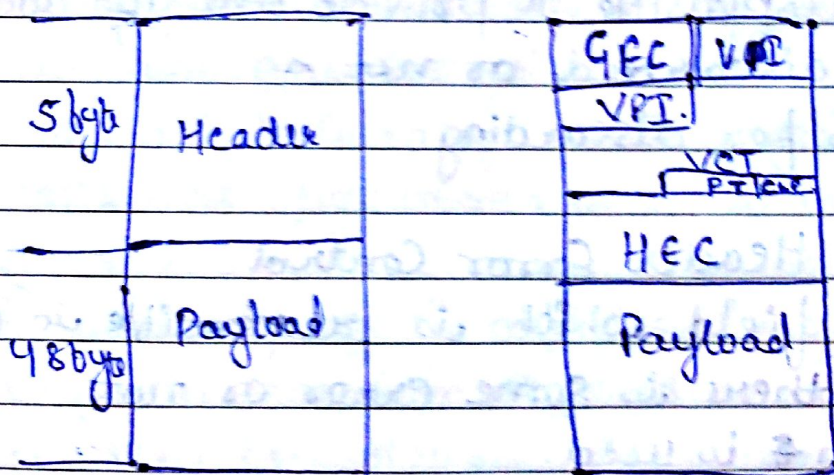 5 byte
Header
48 byte
Payload
GFC VPI
VPI.
VCI
PT CLP
HEC
Payload